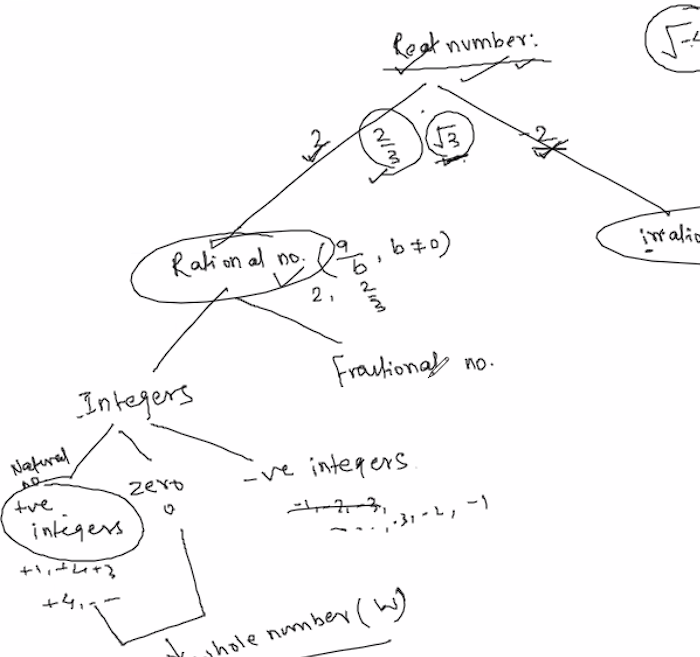 Real number:
√-4
2   2/3   √3   -2
Rational no. (a/b, b≠0)
irratio
2, 2/3
Fractional no.
Integers
Natural no
+ve integers
zero
0
-ve integers
-1, -2, -3,
----, -3, -2, -1
+1, +2, +3
+4, ---
whole number (W)